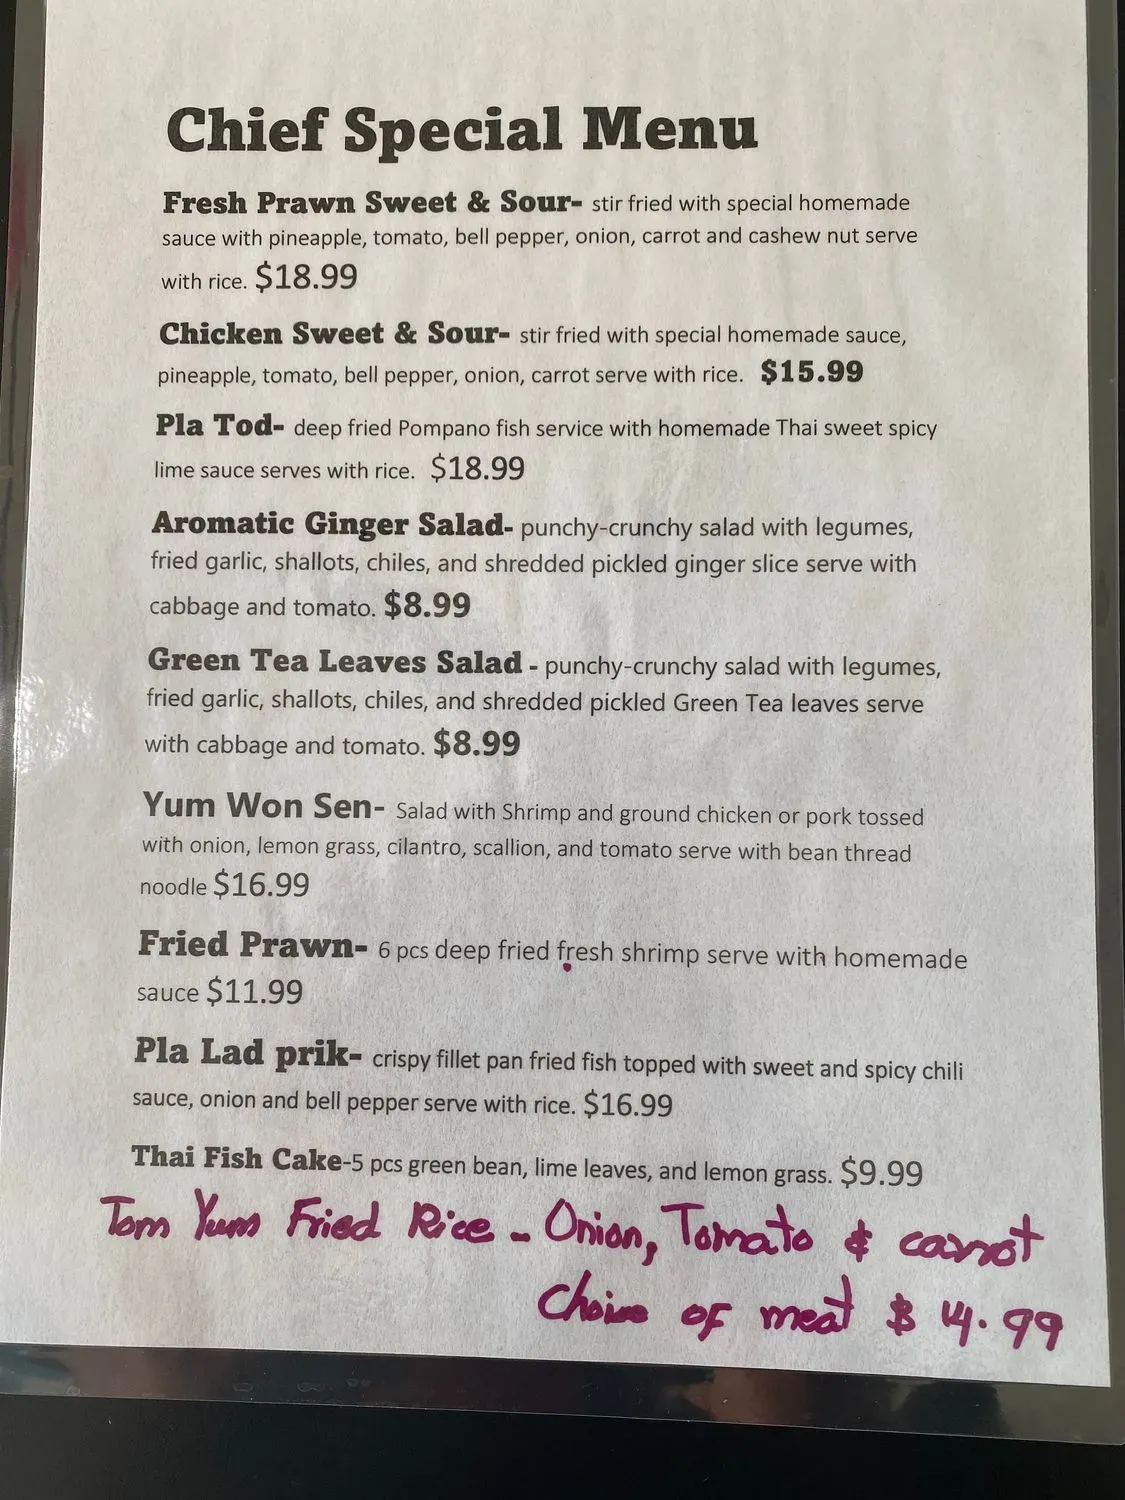 Chief Special Menu
Fresh Prawn Sweet & Sour- stir fried with special homemade
sauce with pineapple, tomato, bell pepper, onion, carrot and cashew nut serve
with rice. $18.99
Chicken Sweet & Sour- stir fried with special homemade sauce,
pineapple, tomato, bell pepper, onion, carrot serve with rice. $15.99
Pla Tod- deep fried Pompano fish service with homemade Thai sweet spicy
lime sauce serves with rice. $18.99
Aromatic Ginger Salad- punchy-crunchy salad with legumes,
fried garlic, shallots, chiles, and shredded pickled ginger slice serve with
cabbage and tomato. $8.99
Green Tea Leaves Salad - punchy-crunchy salad with legumes,
fried garlic, shallots, chiles, and shredded pickled Green Tea leaves serve
with cabbage and tomato. $8.99
Yum Won Sen- Salad with Shrimp and ground chicken or pork tossed
with onion, lemon grass, cilantro, scallion, and tomato serve with bean thread
noodle $16.99
Fried Prawn- 6 pcs deep fried fresh shrimp serve with homemade
sauce $11.99
Pla Lad prik- crispy fillet pan fried fish topped with sweet and spicy chili
sauce, onion and bell pepper serve with rice. $16.99
Thai Fish Cake-5 pcs green bean, lime leaves, and lemon grass. $9.99
Tom Yum Fried Rice - Onion, Tomato & carrot
Choice of meat $ 14.99